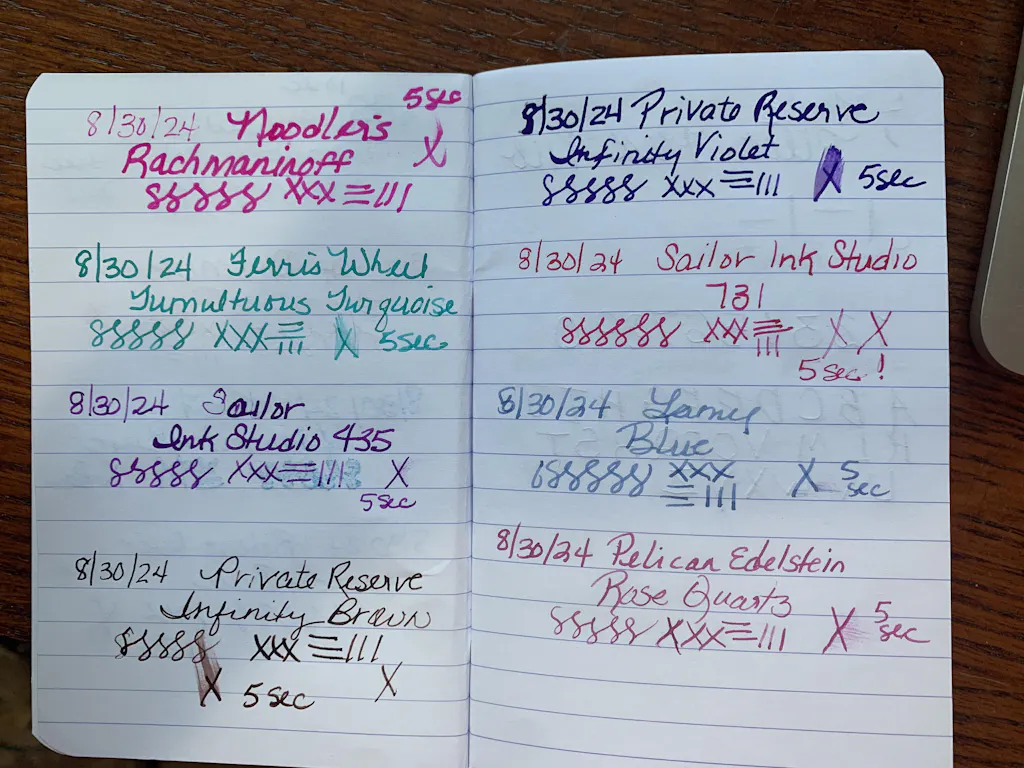 5 sec
8/30/24 Noodler's
Rachmaninoff X
SSSSS XXX
8/30/24 Ferris Wheel
Tumultuous Turquoise
SSSSS XXX X 5 sec
8/30/24 Sailor
Ink Studio 435
SSSSS XXX X
5 sec
8/30/24 Private Reserve
Infinity Brown
SSSSS XXX
X 5 sec X
8/30/24 Private Reserve
Infinity Violet
SSSSS XXX X 5 sec
8/30/24 Sailor Ink Studio
731
SSSSSS XXX X X
5 sec!
8/30/24 Lamy
Blue
SSSSSS XXX X 5
sec
8/30/24 Pelican Edelstein
Rose Quartz
SSSSS XXX X 5
sec